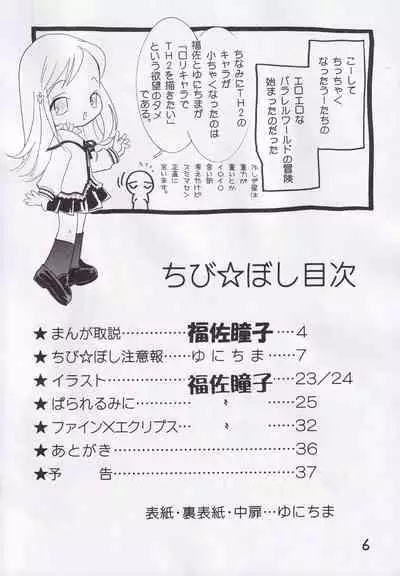 こーして
ちっちゃく
なったうーたちの
エロエロな
パラレルワールドの冒険
始まったのだった
ちなみにTH2の
キャラが
小ちゃくなったのは
福佐とゆにちまが
「ロリキャラで
TH2を描きたい」
という欲望のタメ
である。
重力が
重いとか
イロイロ
言い訳
考えたけど
スミマセン
正直に
言います。
ちび☆ぼし目次
★まんが取説…………福佐瞳子……4
★ちび☆ぼし注意報……ゆにちま……7
★イラスト……………福佐瞳子……23/24
★ぱられるみに………〃……25
★ファイン×エクリプス…〃……32
★あとがき……………………36
★予 告……………………37
表紙・裏表紙・中扉…ゆにちま
6